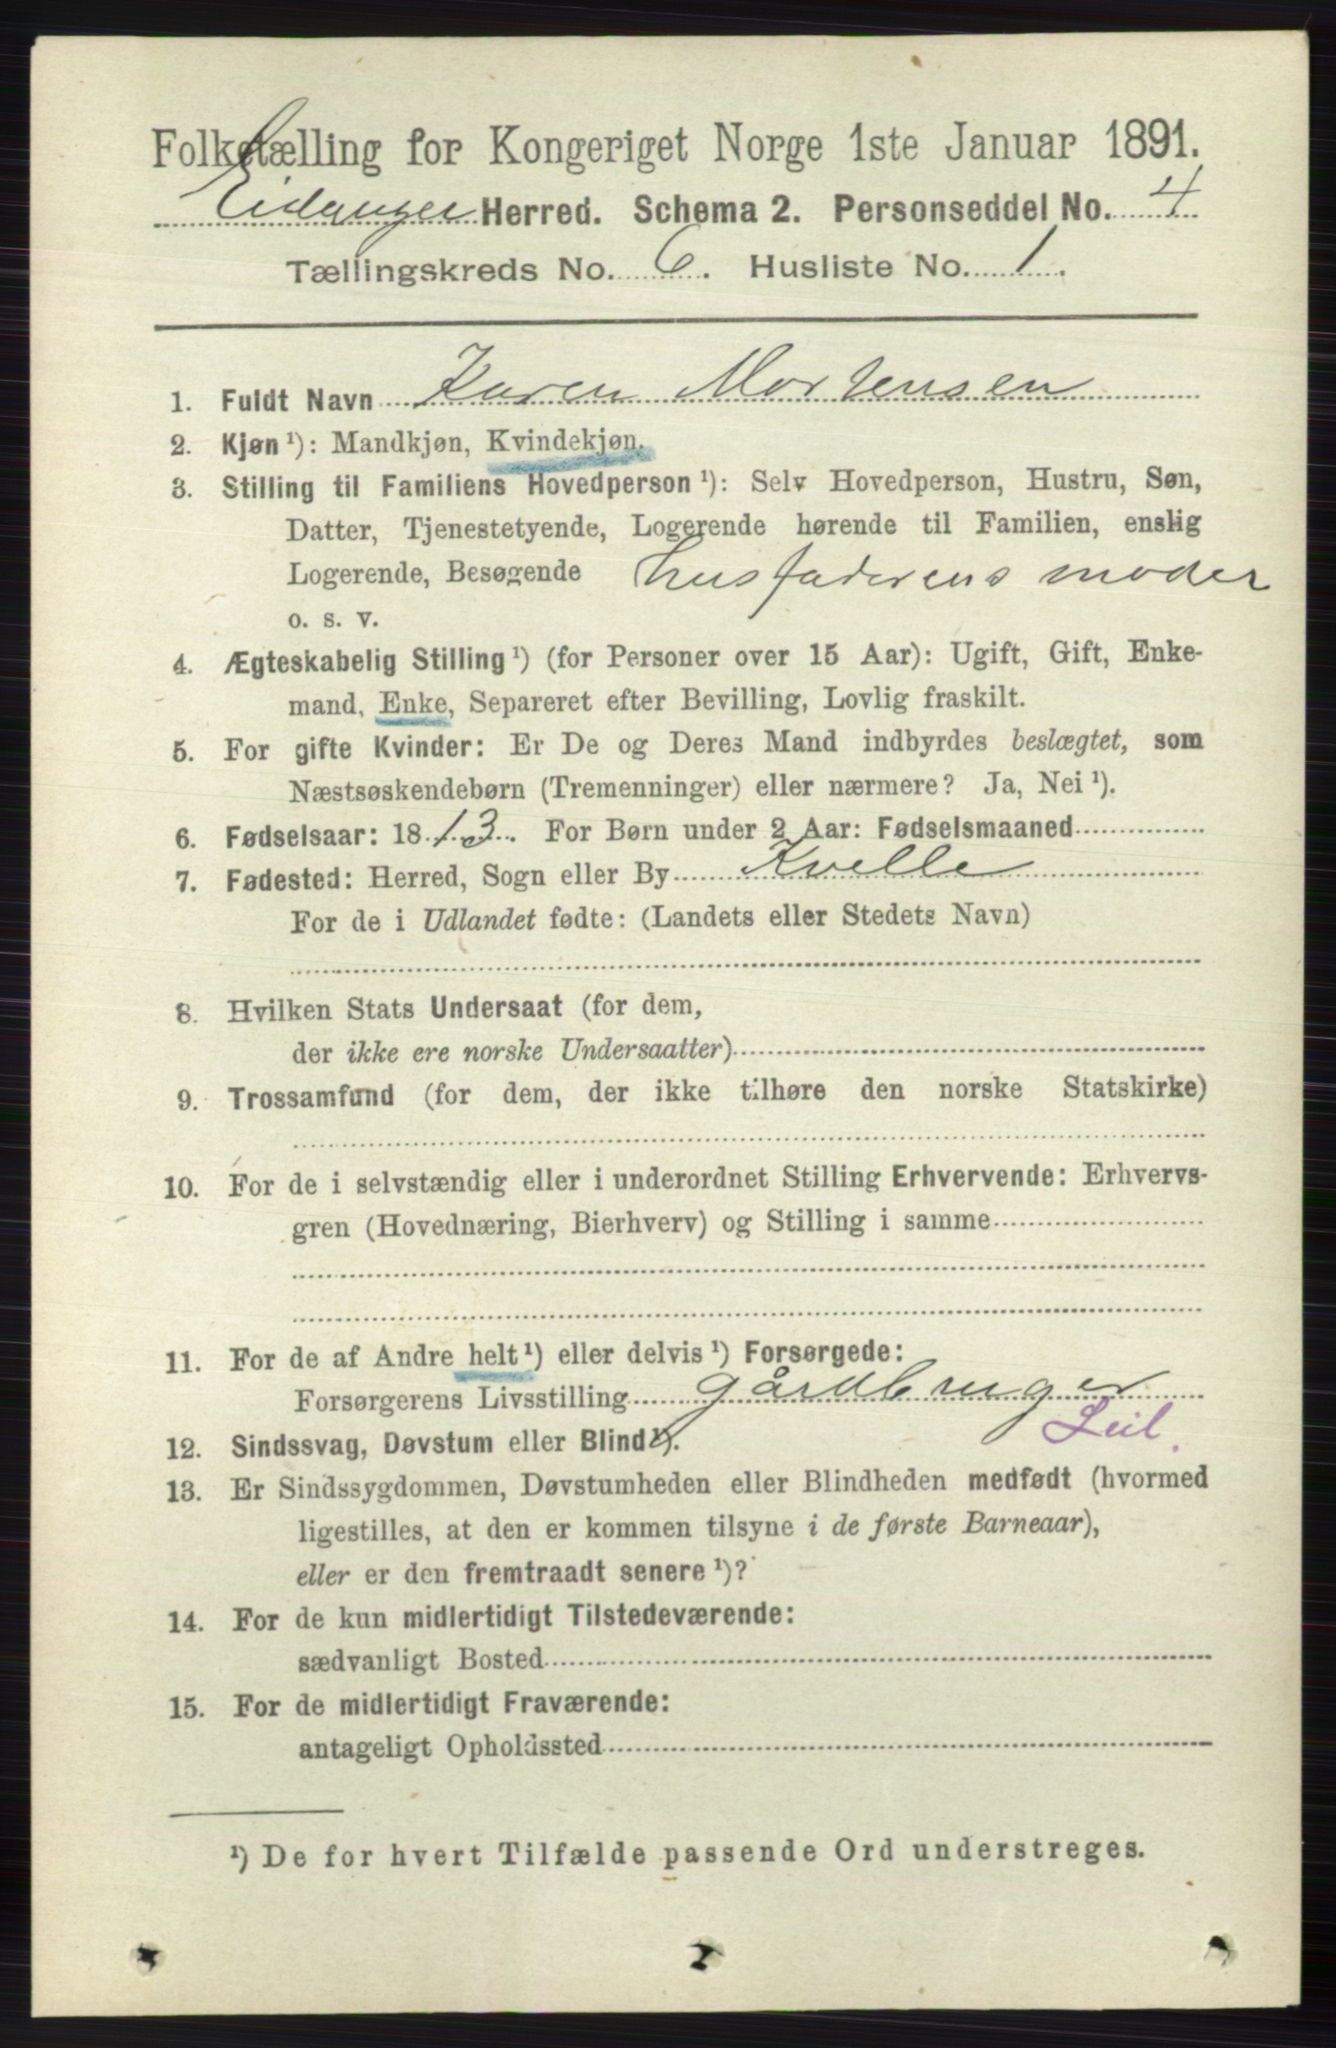 Folketælling for Kongeriget Norge 1ste Januar 1891.
Eidanger Herred. Schema 2. Personseddel No. 4
Tællingskreds No. 6. Husliste No. 1.
1. Fuldt Navn Karen Mortensen
2. Kjøn ¹): Mandkjøn, Kvindekjøn.
3. Stilling til Familiens Hovedperson ¹): Selv Hovedperson, Hustru, Søn,
Datter, Tjenestetyende, Logerende hørende til Familien, enslig
Logerende, Besøgende husfaderens moder
o. s. v.
4. Ægteskabelig Stilling ¹) (for Personer over 15 Aar): Ugift, Gift, Enke-
mand, Enke, Separeret efter Bevilling, Lovlig fraskilt.
5. For gifte Kvinder: Er De og Deres Mand indbyrdes beslægtet, som
Næstsøskendebørn (Tremenninger) eller nærmere? Ja, Nei ¹).
6. Fødselsaar: 1813. For Børn under 2 Aar: Fødselsmaaned
7. Fødested: Herred, Sogn eller By Kvelle
For de i Udlandet fødte: (Landets eller Stedets Navn)
8. Hvilken Stats Undersaat (for dem,
der ikke ere norske Undersaatter)
9. Trossamfund (for dem, der ikke tilhøre den norske Statskirke)
10. For de i selvstændig eller i underordnet Stilling Erhvervende: Erhvervs-
gren (Hovednæring, Bierhverv) og Stilling i samme
11. For de af Andre helt ¹) eller delvis ¹) Forsørgede:
Forsørgerens Livsstilling gårdbruger
Leil.
12. Sindssvag, Døvstum eller Blind ¹).
13. Er Sindssygdommen, Døvstumheden eller Blindheden medfødt (hvormed
ligestilles, at den er kommen tilsyne i de første Barneaar),
eller er den fremtraadt senere ¹)?
14. For de kun midlertidigt Tilstedeværende:
sædvanligt Bosted
15. For de midlertidigt Fraværende:
antageligt Opholdssted
¹) De for hvert Tilfælde passende Ord understreges.